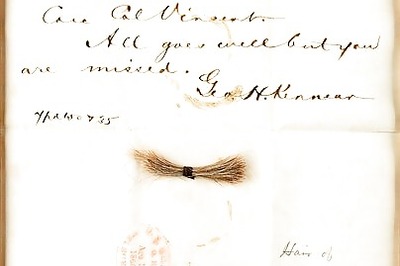 Care Col Vincent.
All goes well but you
are missed.
Geo. H. Kinnear
Hair of